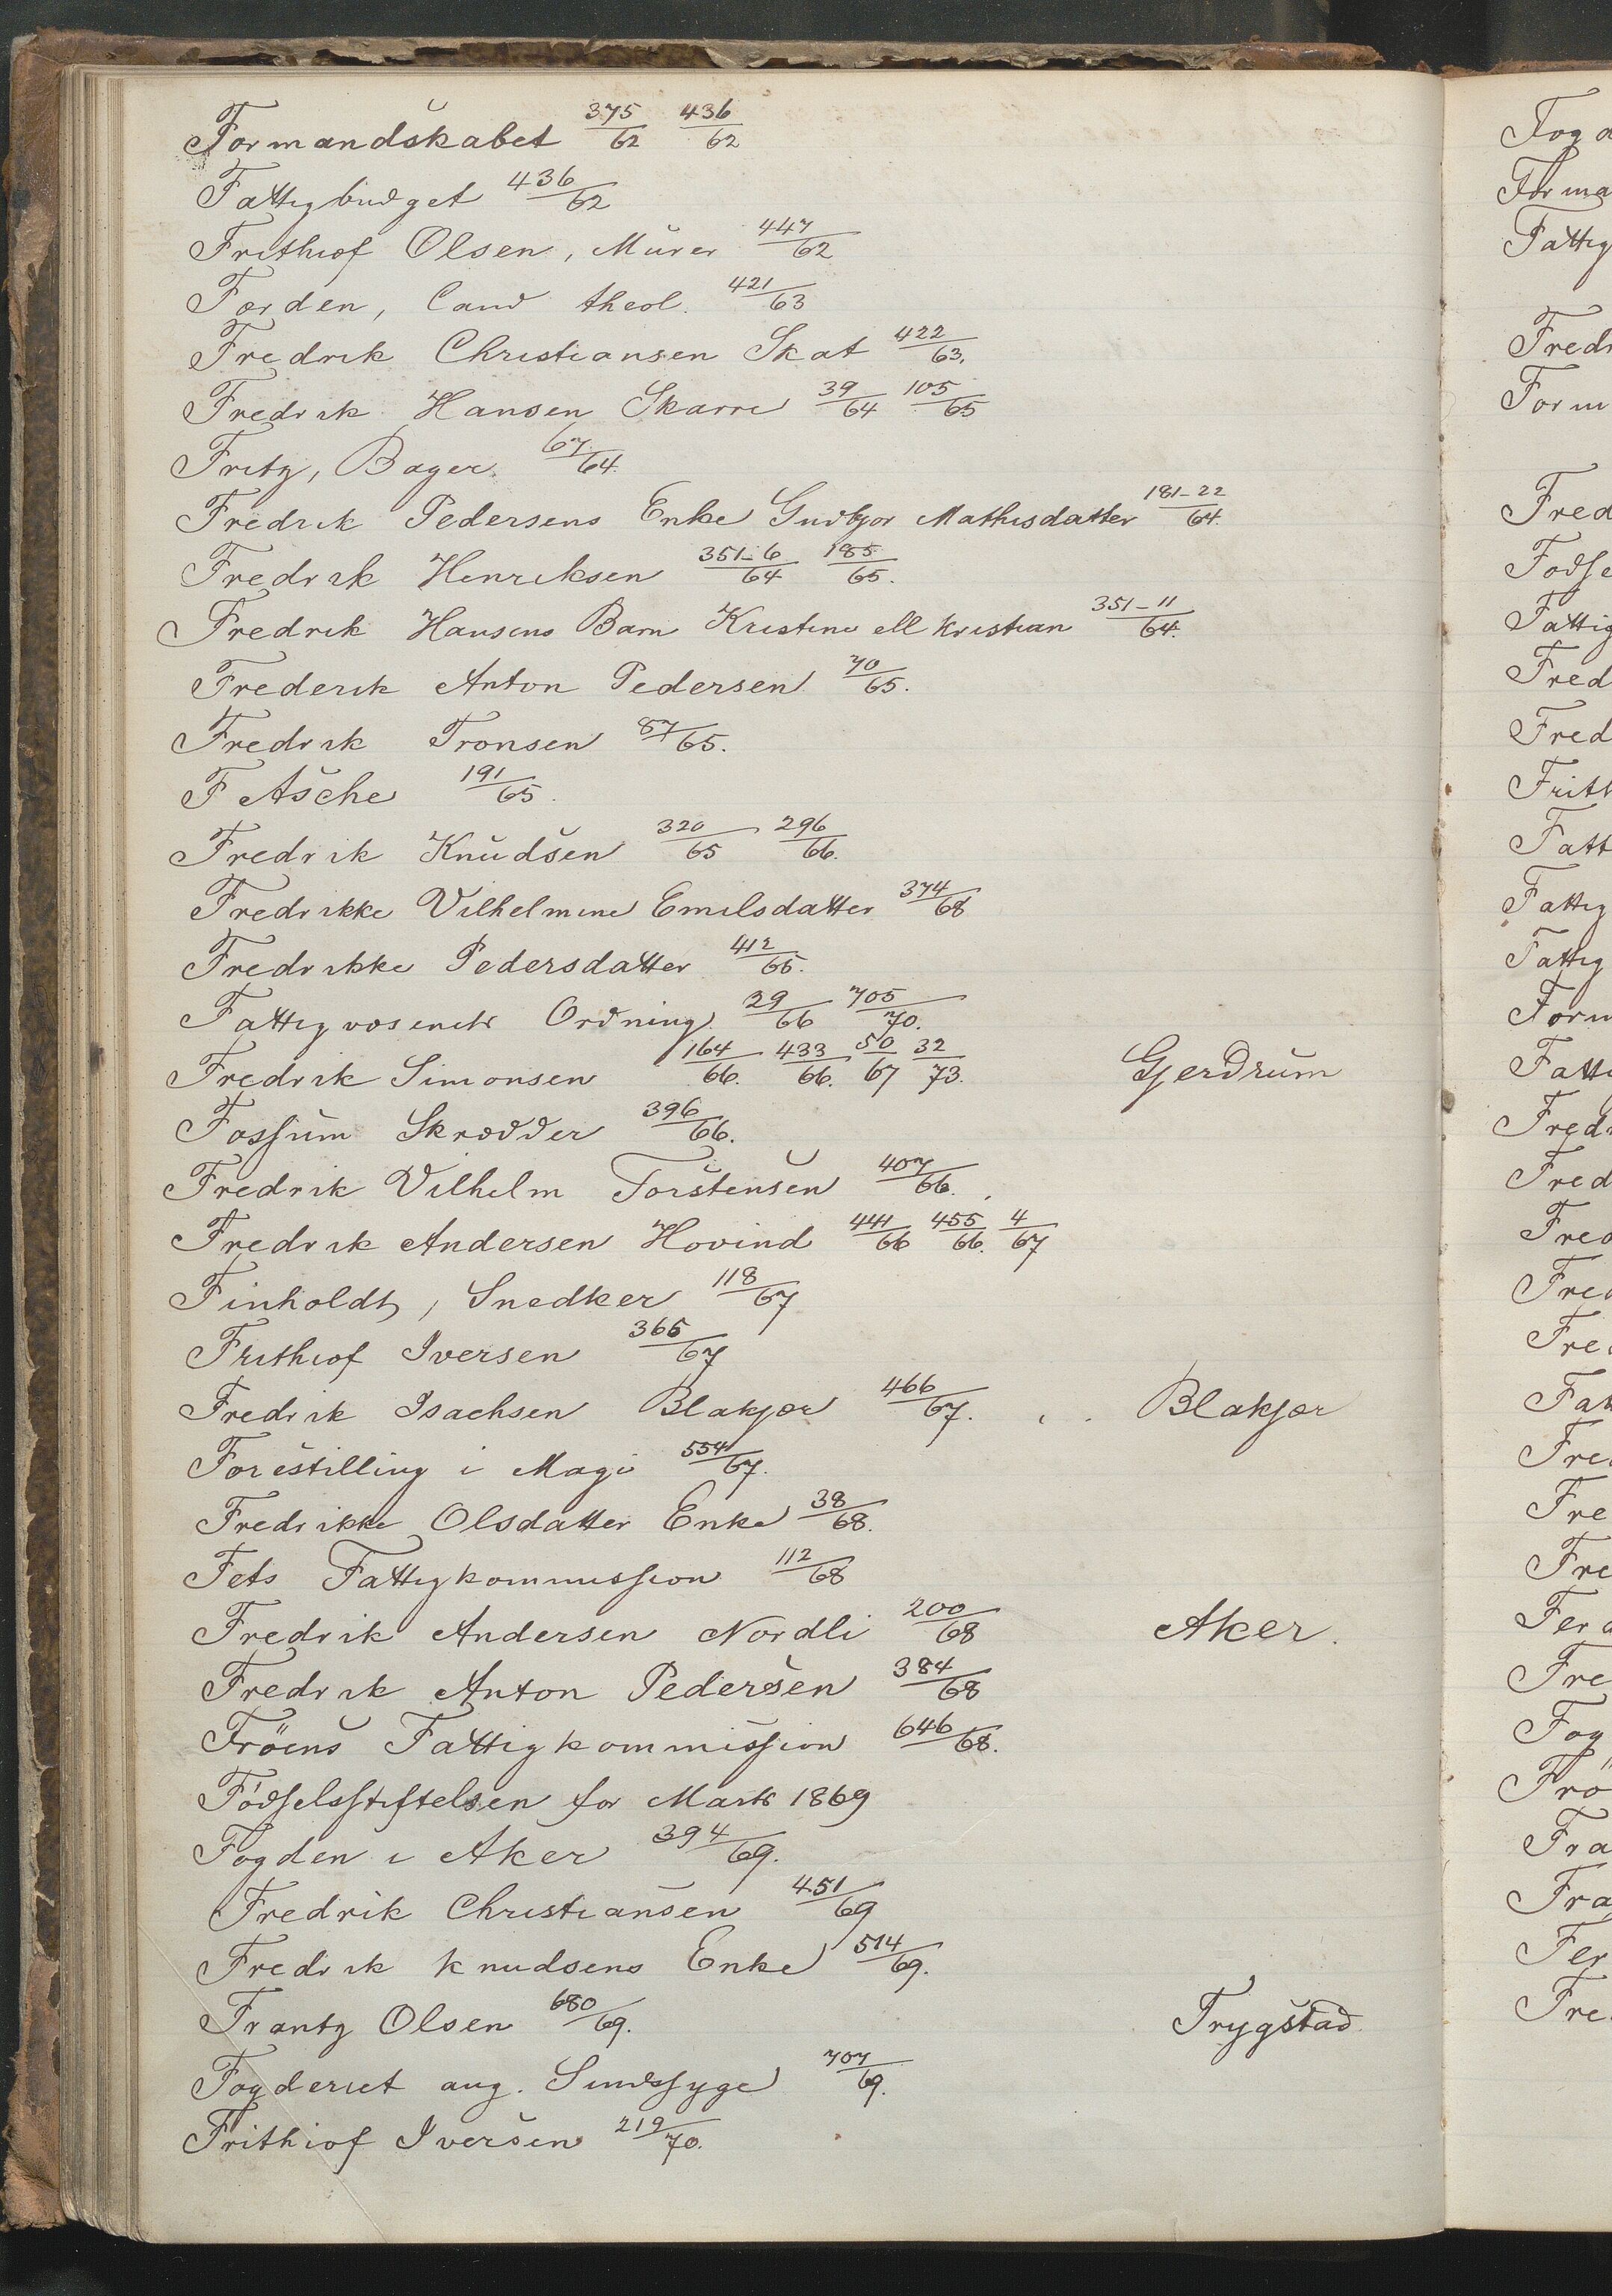 Formandskabet 375/62 436/62
Fattigbudget 436/62
Frithiof Olsen, Murer 447/62
Førden, Cand theol. 421/63
Fredrik Christiansen Skat 422/63.
Fredrik Hansen Skarre 39/64 105/65
Fritz, Bager. 67/64.
Fredrik Pedersens Enke Gudbjor Mathisdatter 181-22/64.
Fredrik Henriksen 351-6/64 185/65.
Fredrik Hansens Barn Kristine ell kristian 351-11/64.
Frederik Anton Pedersen 70/65.
Fredrik Tronsen 87/65.
F Asche 191/65.
Fredrik Knudsen 320/65 296/66.
Fredrikke Vilhelmine Emilsdatter 374/68
Fredrikke Pedersdatter 412/65.
Fattigvæsenets Ordning 29/66 705/70.
Fredrik Simonsen 164/66. 433/66. 50/67 32/73. Gjerdrum
Fossum Skrædder 396/66.
Fredrik Vilhelm Torstensen 407/66.
Fredrik Andersen Hovind 441/66 455/66. 4/67
Finholdt, Snedker 118/67
Frithiof Iversen 365/67
Fredrik Isachsen Blakjær 466/67. Blakjær
Forestilling i Magi 554/67.
Fredrikke Olsdatter Enke 38/68.
Fets Fattigkommission 112/68
Fredrik Andersen Nordli 200/68 Aker.
Fredrik Anton Pedersen 384/68
Fröens Fattigkommission 646/68.
Födselsstiftelsen for Marts 1869
Fogden i Aker 394/69.
Fredrik Christiansen 451/69
Fredrik knudsens Enke 514/69.
Frantz Olsen 680/69. Trygstad
Fogderiet ang. Sindssyge 707/69.
Frithiof Iversen 219/70.